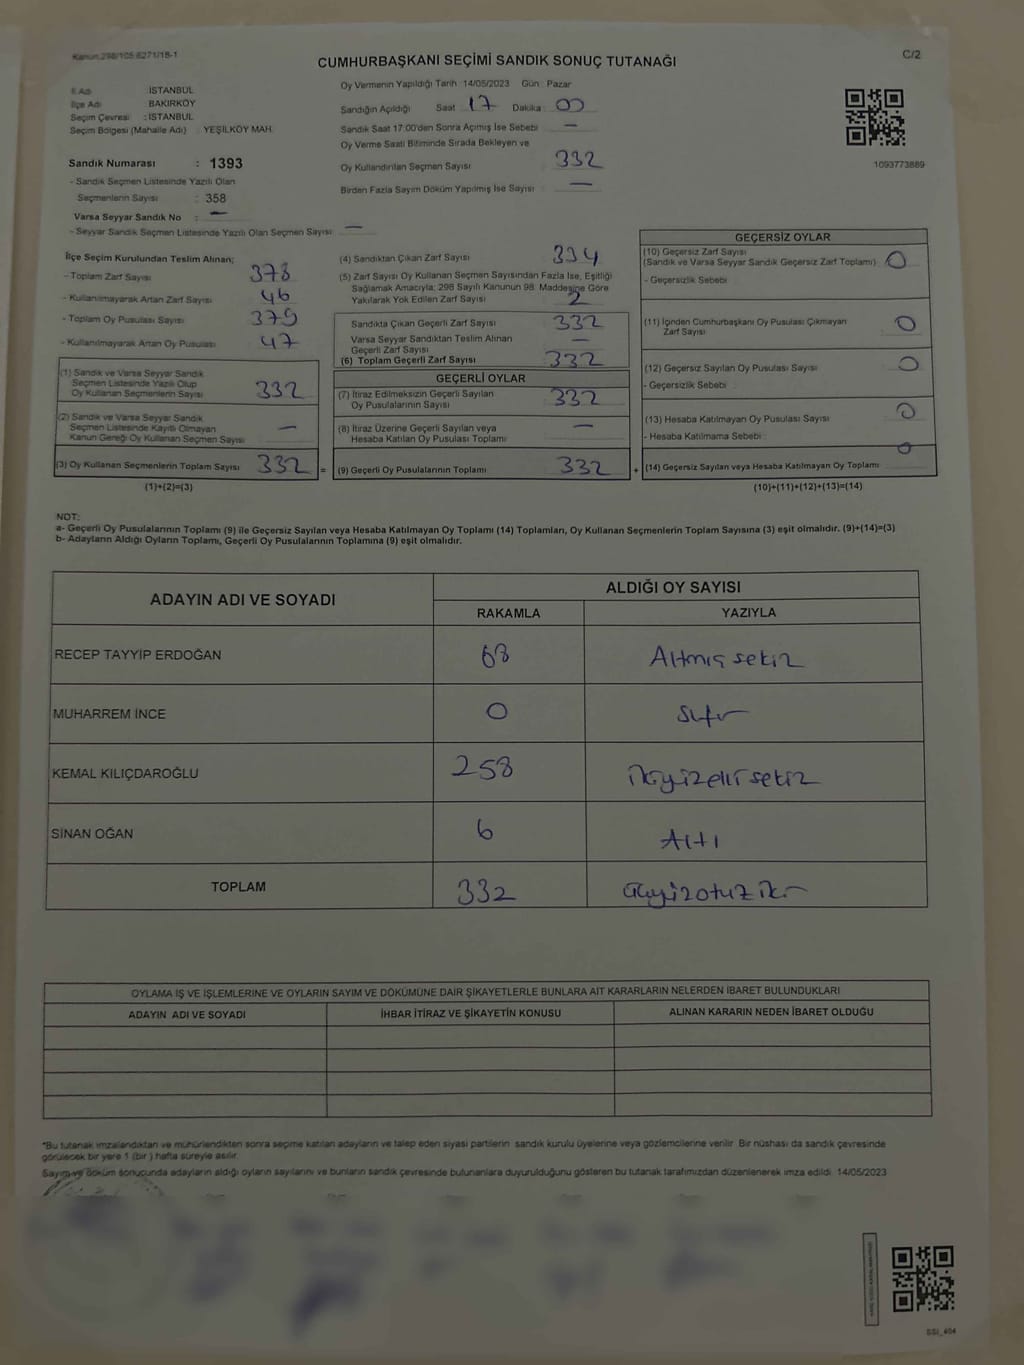 Kanun:298/105-6271/18-1
C/2
CUMHURBAŞKANI SEÇİMİ SANDIK SONUÇ TUTANAĞI
İl Adı : İSTANBUL
İlçe Adı : BAKIRKÖY
Seçim Çevresi : İSTANBUL
Seçim Bölgesi (Mahalle Adı) : YEŞİLKÖY MAH.
Sandık Numarası : 1393
- Sandık Seçmen Listesinde Yazılı Olan
Seçmenlerin Sayısı : 358
Varsa Seyyar Sandık No : —
- Seyyar Sandık Seçmen Listesinde Yazılı Olan Seçmen Sayısı : —
Oy Vermenin Yapıldığı Tarih : 14/05/2023 Gün : Pazar
Sandığın Açıldığı Saat : 17 Dakika : 00
Sandık Saat 17:00'den Sonra Açımış İse Sebebi : —
Oy Verme Saati Bitiminde Sırada Bekleyen ve
Oy Kullandırılan Seçmen Sayısı : 332
Birden Fazla Sayım Döküm Yapılmış İse Sayısı : —
1093773889
İlçe Seçim Kurulundan Teslim Alınan;
- Toplam Zarf Sayısı : 378
- Kullanılmayarak Artan Zarf Sayısı : 46
- Toplam Oy Pusulası Sayısı : 379
- Kullanılmayarak Artan Oy Pusulası : 47
(1) Sandık ve Varsa Seyyar Sandık
Seçmen Listesinde Yazılı Olup
Oy Kullanan Seçmenlerin Sayısı : 332
(2) Sandık ve Varsa Seyyar Sandık
Seçmen Listesinde Kayıtlı Olmayan
Kanun Gereği Oy Kullanan Seçmen Sayısı : —
(3) Oy Kullanan Seçmenlerin Toplam Sayısı : 332 =
(1)+(2)=(3)
(4) Sandıktan Çıkan Zarf Sayısı : 334
(5) Zarf Sayısı Oy Kullanan Seçmen Sayısından Fazla İse, Eşitliği
Sağlamak Amacıyla; 298 Sayılı Kanunun 98. Maddesine Göre
Yakılarak Yok Edilen Zarf Sayısı : 2
Sandıkta Çıkan Geçerli Zarf Sayısı : 332
Varsa Seyyar Sandıktan Teslim Alınan
Geçerli Zarf Sayısı : —
(6) Toplam Geçerli Zarf Sayısı : 332
GEÇERLİ OYLAR
(7) İtiraz Edilmeksizin Geçerli Sayılan
Oy Pusulalarının Sayısı : 332
(8) İtiraz Üzerine Geçerli Sayılan veya
Hesaba Katılan Oy Pusulası Toplamı : —
(9) Geçerli Oy Pusulalarının Toplamı : 332 +
GEÇERSİZ OYLAR
(10) Geçersiz Zarf Sayısı
(Sandık ve Varsa Seyyar Sandık Geçersiz Zarf Toplamı) : 0
- Geçersizlik Sebebi :
(11) İçinden Cumhurbaşkanı Oy Pusulası Çıkmayan
Zarf Sayısı : 0
(12) Geçersiz Sayılan Oy Pusulası Sayısı : 0
- Geçersizlik Sebebi :
(13) Hesaba Katılmayan Oy Pusulası Sayısı : 0
- Hesaba Katılmama Sebebi :
(14) Geçersiz Sayılan veya Hesaba Katılmayan Oy Toplamı : 0
(10)+(11)+(12)+(13)=(14)
NOT:
a- Geçerli Oy Pusulalarının Toplamı (9) ile Geçersiz Sayılan veya Hesaba Katılmayan Oy Toplamı (14) Toplamları, Oy Kullanan Seçmenlerin Toplam Sayısına (3) eşit olmalıdır. (9)+(14)=(3)
b- Adayların Aldığı Oyların Toplamı, Geçerli Oy Pusulalarının Toplamına (9) eşit olmalıdır.
ADAYIN ADI VE SOYADI
ALDIĞI OY SAYISI
RAKAMLA YAZIYLA
RECEP TAYYİP ERDOĞAN 68 Altmış sekiz
MUHARREM İNCE 0 Sıfır
KEMAL KILIÇDAROĞLU 258 ikiyüzelli sekiz
SİNAN OĞAN 6 Altı
TOPLAM 332 Üçyüzotuz iki
OYLAMA İŞ VE İŞLEMLERİNE VE OYLARIN SAYIM VE DÖKÜMÜNE DAİR ŞİKAYETLERLE BUNLARA AİT KARARLARIN NELERDEN İBARET BULUNDUKLARI
ADAYIN ADI VE SOYADI İHBAR İTİRAZ VE ŞİKAYETİN KONUSU ALINAN KARARIN NEDEN İBARET OLDUĞU
*Bu tutanak imzalandıktan ve mühürlendikten sonra seçime katılan adayların ve talep eden siyasi partilerin sandık kurulu üyelerine veya gözlemcilerine verilir. Bir nüshası da sandık çevresinde
görülecek bir yere 1 (bir ) hafta süreyle asılır.
Sayım ve döküm sonucunda adayların aldığı oyların sayılarını ve bunların sandık çevresinde bulunanlara duyurulduğunu gösteren bu tutanak tarafımızdan düzenlenerek imza edildi. 14/05/2023
SSI_404